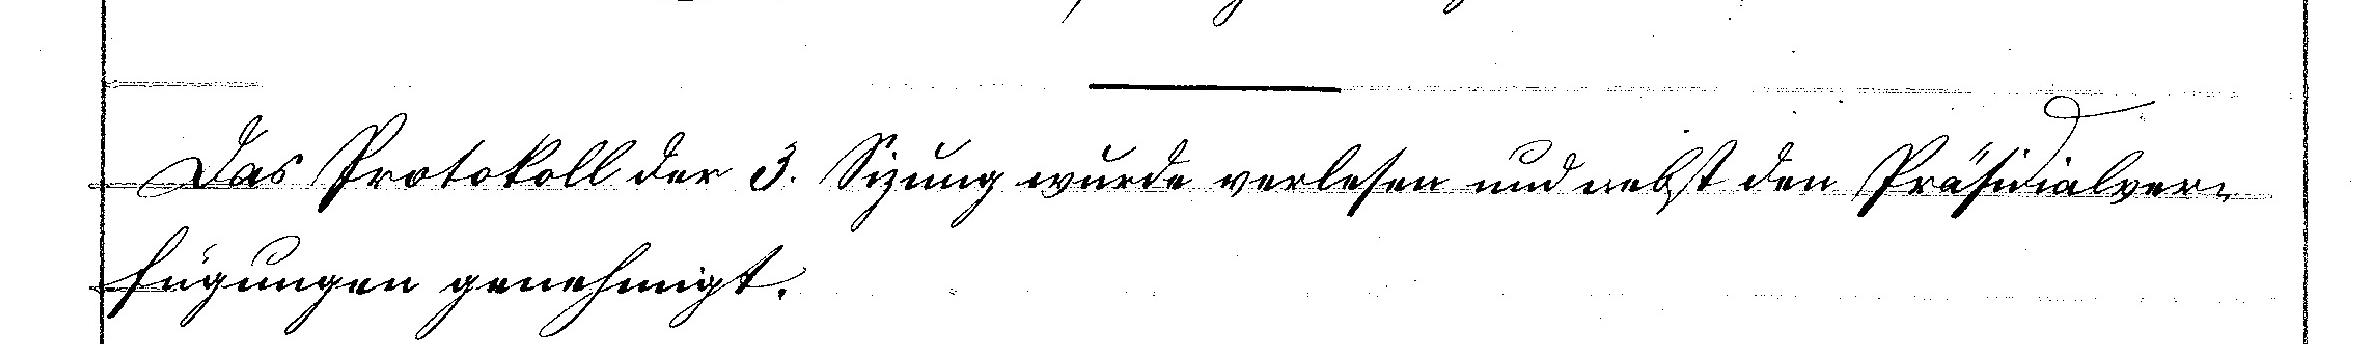 Das Protokoll der 3. Sizung wurde verlesen und nebst den Präsidialver-
fügungen genehmigt.